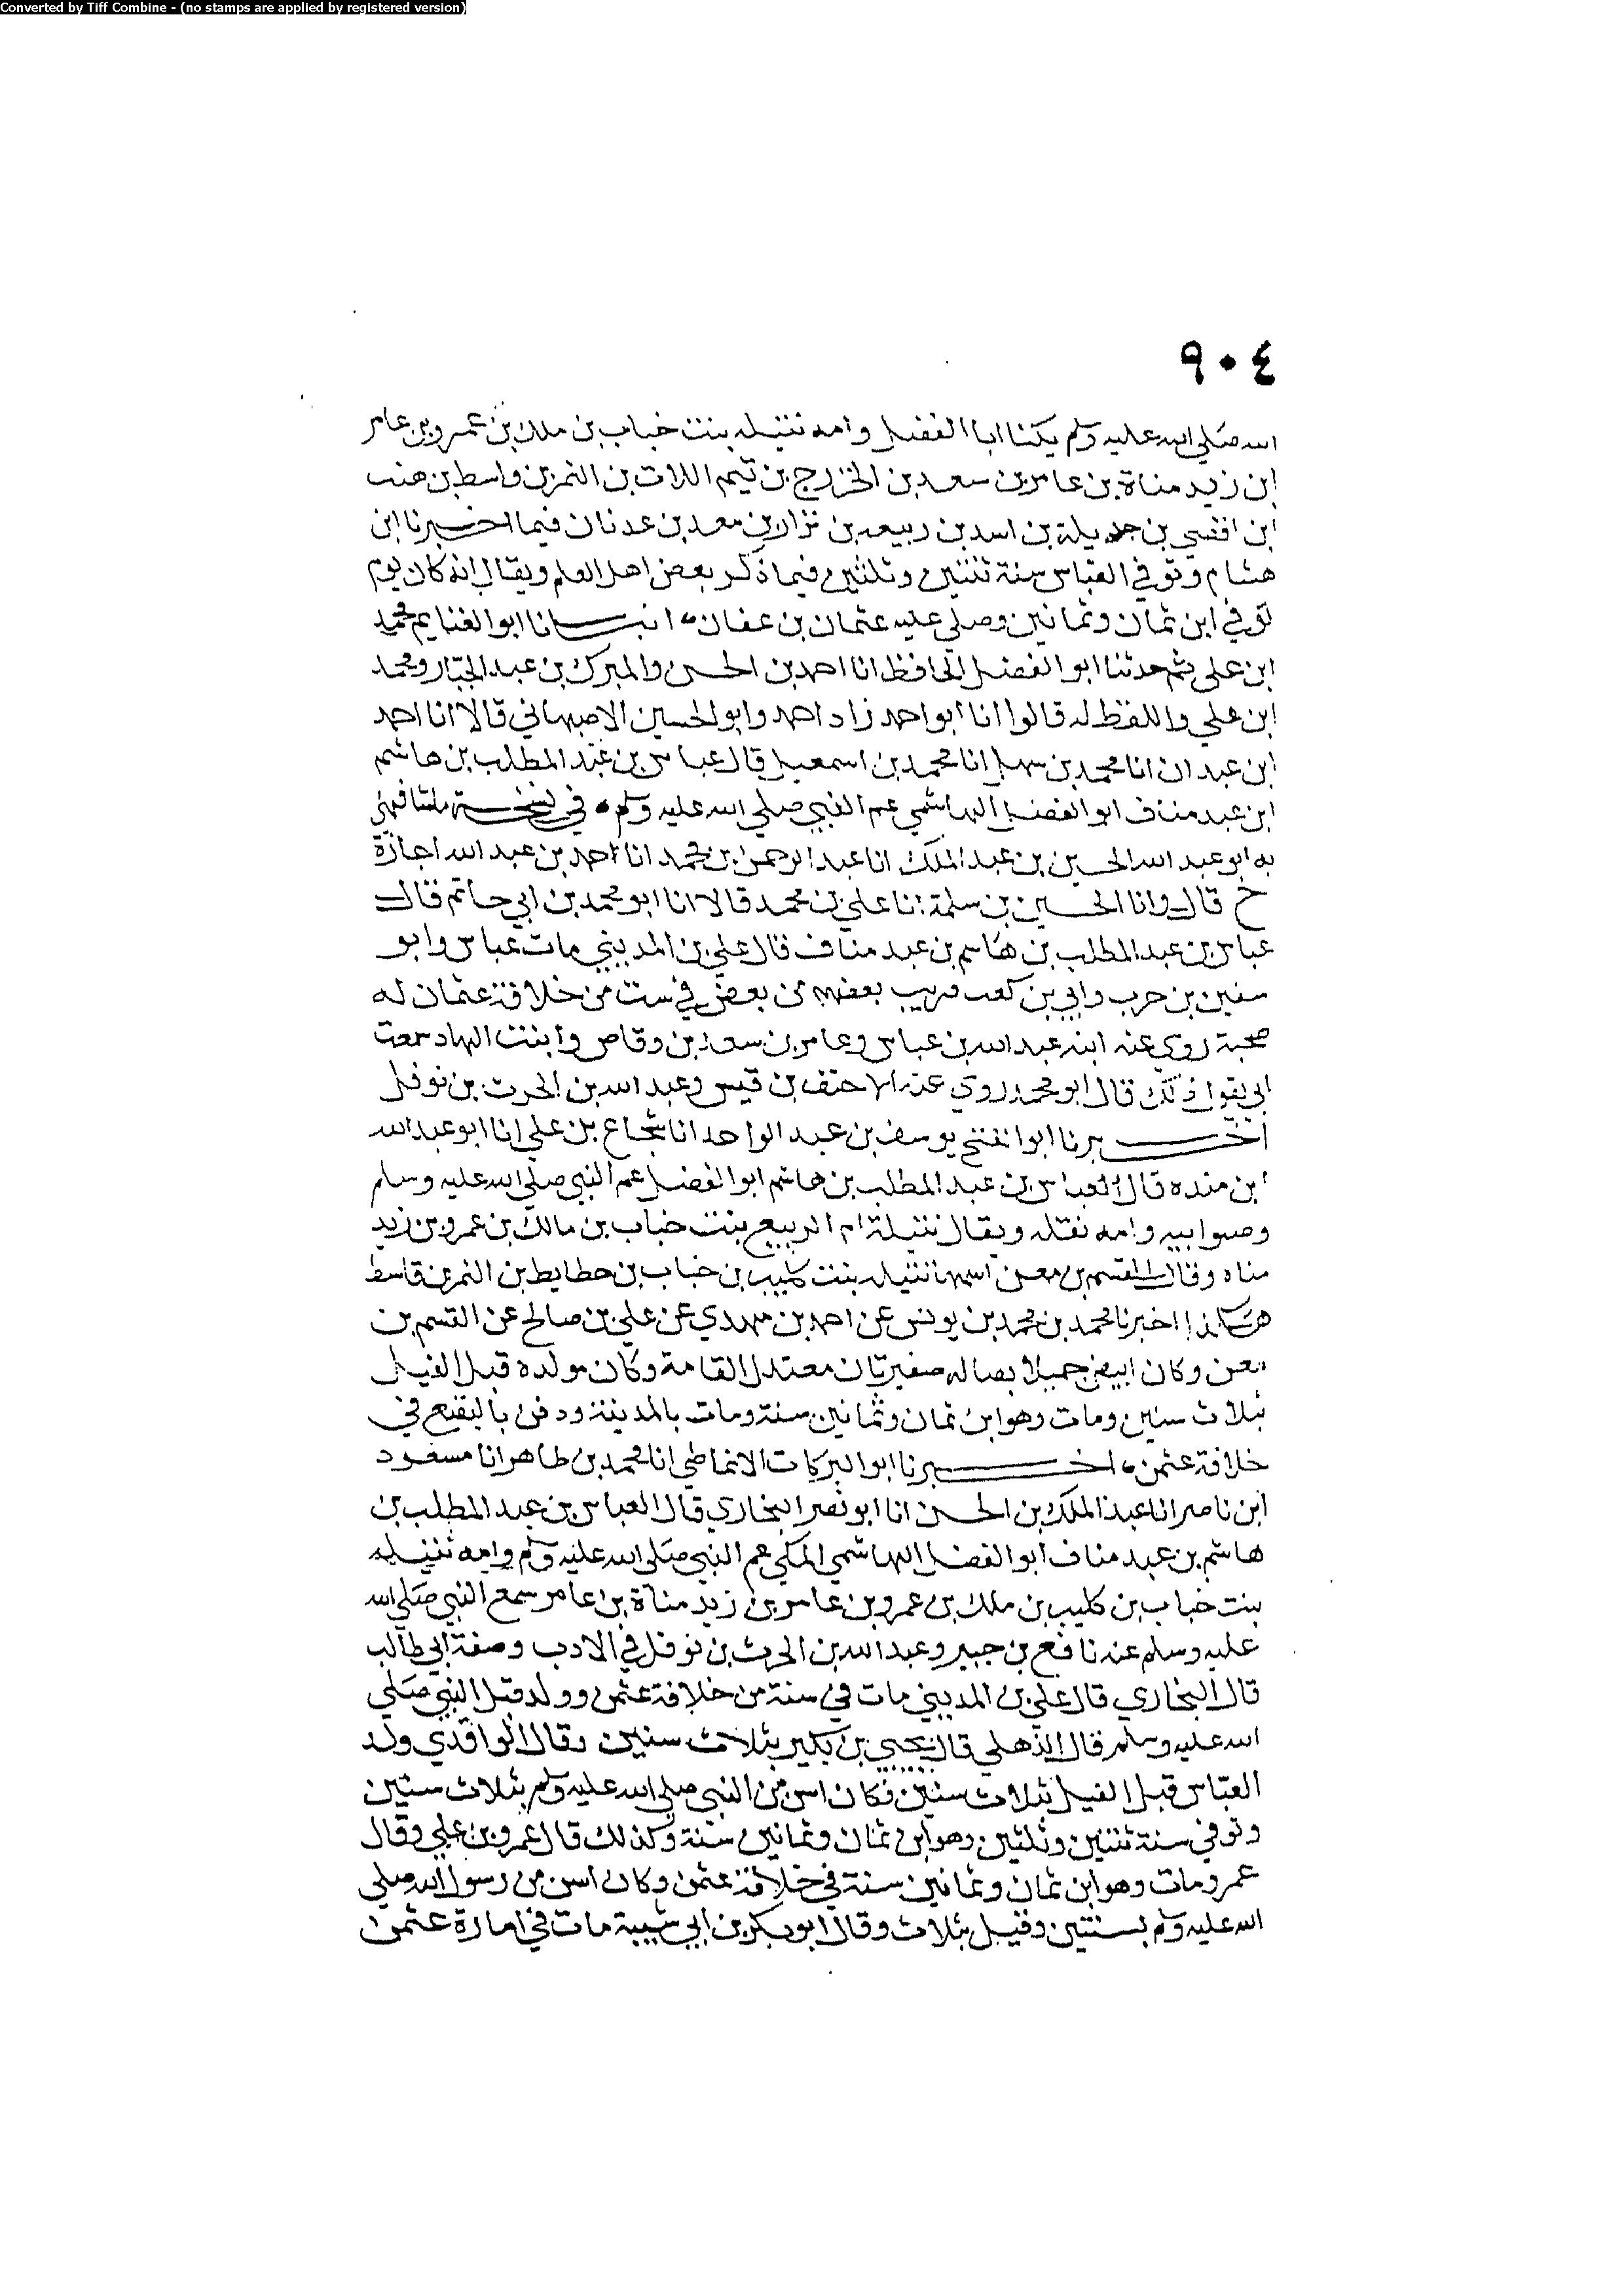 Converted by Tiff Combine - (no stamps are applied by registered version)
٩٠٤
الله صلي الله عليه وسلم يكنا ابا الفضل وامه نتيله بنت خباب بن ملك بن عمرو بن عامر
ابن زيد مناة بن عامر بن سعد بن الخزرج بن تيم اللات بن النمر بن واسط بن هنب
ابن افصي بن جديلة بن اسد بن ربيعه بن نزار بن معد بن عدنان فيما اخبرنا ابن
هشام وتوفي العباس سنة ثنتين وثلثين فيما ذكر بعض اهل العلم ويقال انه كان يوم
توفي ابن ثمان وثمانين وصلي عليه عثمان بن عفان، انبانا ابو الغنايم محمد
ابن علي ثم حدثنا ابو الفضل الحافظ انا احمد بن الحسن والمبرك بن عبد الجبار ومحمد
ابن علي واللفظ له قالوا انا ابو احمد زاد احمد وابو الحسين الاصبهاني قالا انا احمد
ابن عبدان انا محمد بن سهل انا محمد بن اسمعيل قال عباس بن عبد المطلب بن هاشم
ابن عبد مناف ابو الفضل الهاشمي عم النبي صلي الله عليه وسلم • في نسخة ما شافهني
به ابو عبد الله الحسين بن عبد الملك انا عبد الرحمن بن محمد انا احمد بن عبد الله اجازة
ح قال وانا الحسين بن سلمة انا علي بن محمد قالا انا ابو محمد بن ابي حاتم قال
عباس بن عبد المطلب بن هاشم بن عبد مناف قال علي بن المديني مات عباس وابو
سفين بن حرب وابي بن كعب قريب بعضهم من بعض في ست من خلافة عثمان له
صحبة روي عنه ابنه عبد الله بن عباس وعامر بن سعد بن وقاص وابنت الهاد سمعت
ابي يقول ذلك قال ابو محمد روي عنه الاحنف بن قيس وعبد الله بن الحرث بن نوفل
اخبرنا ابو الفتح يوسف بن عبد الواحد انا شجاع بن علي انا ابو عبد الله
ابن منده قال العباس بن عبد المطلب بن هاشم ابو الفضل عم النبي صلي الله عليه وسلم
وصنوا بيه وامه نقله ويقال نتيلة ام الربيع بنت خباب بن مالك بن عمرو بن زيد
مناه وقال القسم بن معن اسمها نتيله بنت كليب بن خباب بن حطايط بن النمر بن قاسط
هكذا اخبرنا محمد بن محمد بن يونس عن احمد بن مهدي عن علي بن صالح عن القسم بن
معن وكان ابيض جميلا بصا له صفيرتان معتدل القامة وكان مولده قبل الفيل
بثلاث سنين ومات وهو ابن ثمان وثمانين سنة ومات بالمدينة ودفن بالبقيع في
خلافة عثمن، اخبرنا ابو البركات الانماطي انا محمد بن طاهر انا مسعود
ابن ناصر انا عبد الملك بن الحسن انا ابو نصر البخاري قال العباس بن عبد المطلب بن
هاشم بن عبد مناف ابو الفضل الهاشمي المكي عم النبي صلي الله عليه وسلم وامه نتيله
بنت خباب بن كليب بن ملك بن عمرو بن عامر بن زيد مناة بن عامر سمع النبي صلي الله
عليه وسلم عنه نافع بن جبير وعبد الله بن الحرث بن نوفل في الادب وصفة ابي طالب
قال البخاري قال علي بن المديني مات في سنة من خلافة عثمن وولد قبل النبي صلي
الله عليه وسلم قال الذهلي قال يحيي بن بكير بثلاث سنين وقال الواقدي ولد
العباس قبل الفيل بثلاث سنين فكان اسن من النبي صلي الله عليه وسلم بثلاث سنين
وتوفي سنة ثنتين وثلثين وهو ابن ثمان وثمانين سنة وكذلك قال عمرو بن علي وقال
عمر ومات وهو ابن ثمان وثمانين سنة في خلافة عثمن وكان اسن من رسول الله صلي
الله عليه وسلم بسنتين وقيل بثلاث وقال ابو بكر بن ابي شيبة مات في امارة عثمن